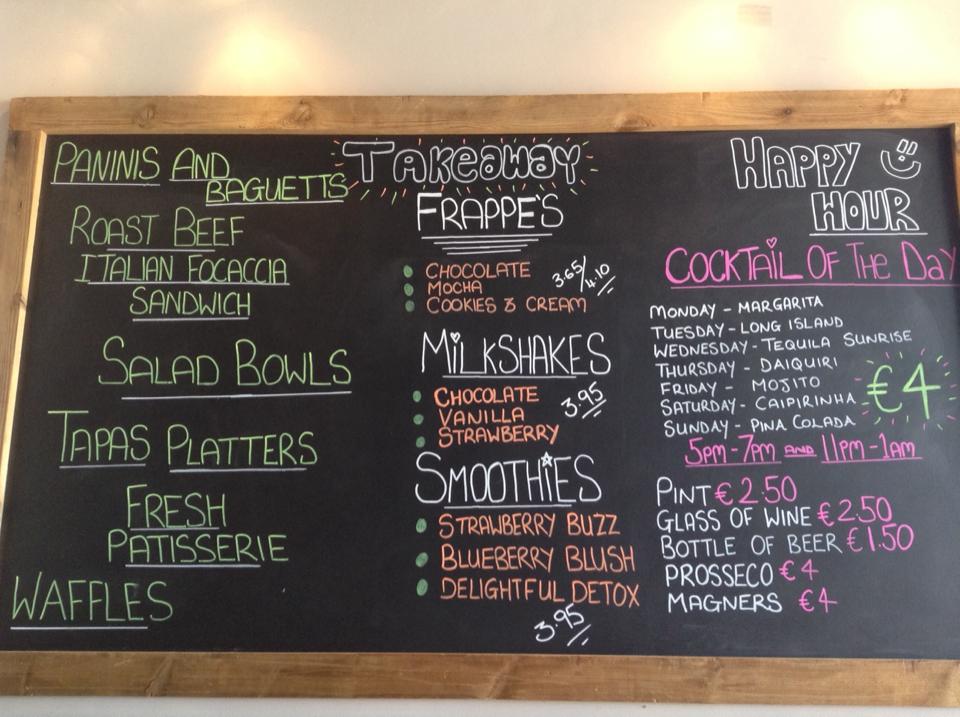 PANINIS AND
BAGUETTS
ROAST BEEF
ITALIAN FOCACCIA
SANDWICH
SALAD BOWLS
TAPAS PLATTERS
FRESH
PATISSERIE
WAFFLES
TAKEAWAY
FRAPPE'S
CHOCOLATE
MOCHA
COOKIES & CREAM
3.65/4.10
MILKSHAKES
CHOCOLATE
VANILLA
STRAWBERRY
3.95
SMOOTHIES
STRAWBERRY BUZZ
BLUEBERRY BLUSH
DELIGHTFUL DETOX
3.95
HAPPY
HOUR
COCKTAIL OF THE DAY
MONDAY - MARGARITA
TUESDAY - LONG ISLAND
WEDNESDAY - TEQUILA SUNRISE
THURSDAY - DAIQUIRI
FRIDAY - MOJITO
SATURDAY - CAIPIRINHA
SUNDAY - PINA COLADA
€4
5PM - 7PM AND 11PM - 1AM
PINT €2.50
GLASS OF WINE €2.50
BOTTLE OF BEER €1.50
PROSSECO €4
MAGNERS €4